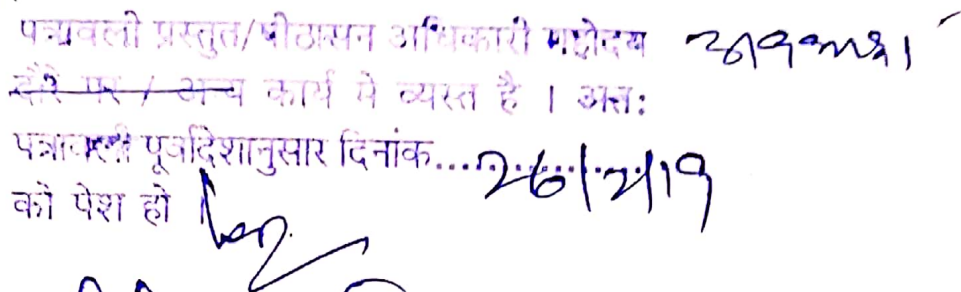 पत्रावली प्रस्तुत/पीठासन अधिकारी महोदय अवकाश
दौरे पर / अन्य कार्य मे व्यस्त है । अतः
पत्रावली पूर्वादेशानुसार दिनांक.................. 26/2/19
को पेश हो ।